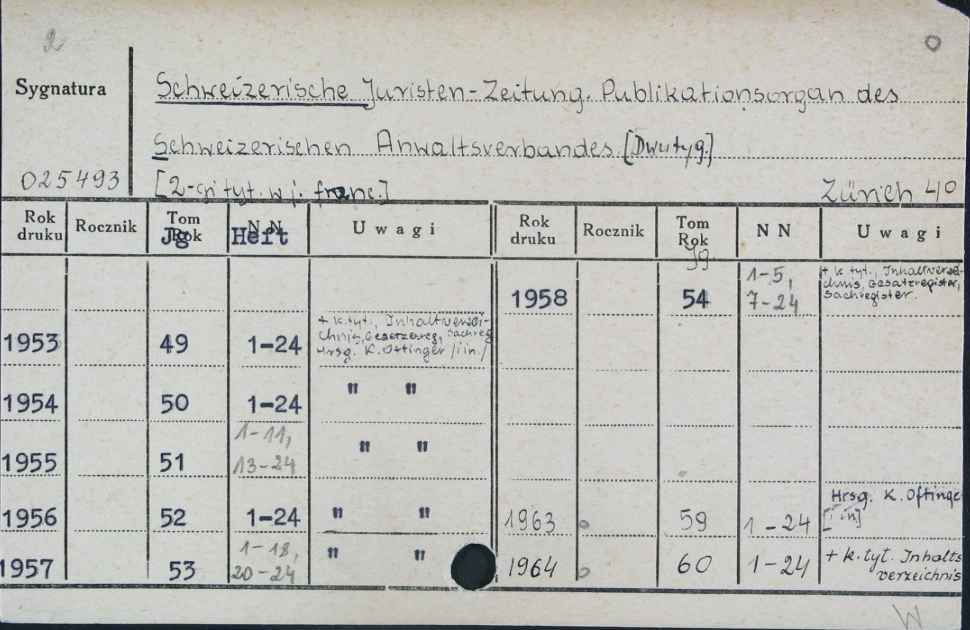 2
Sygnatura
Schweizerische Juristen-Zeitung. Publikationsorgan des
Schweizerischen Anwaltsverbandes. [Dwutyg.]
025493 [2-gi tyt. w j. franc.] Zürich 40
Rok druku Rocznik Tom Rok Jg NN Heft Uwagi Rok druku Rocznik Tom Rok Jg. NN Uwagi
1958 54 1-5, 7-24 + k. tyt., Inhaltsverzei-
chnis, Gesetzregister,
Sachregister.
1953 49 1-24 + k. tyt., Inhaltverzei-
chnis, Gesetzreg., Sachreg.
Hrsg. K. Oftinger /i in./
1954 50 1-24 " "
1955 51 1-11, 13-24 " "
1956 52 1-24 " "
1963 59 1-24 Hrsg. K. Oftinge
[i in]
1957 53 1-18, 20-24 " "
1964 60 1-24 + k. tyt. Inhalts
verzeichnis
W